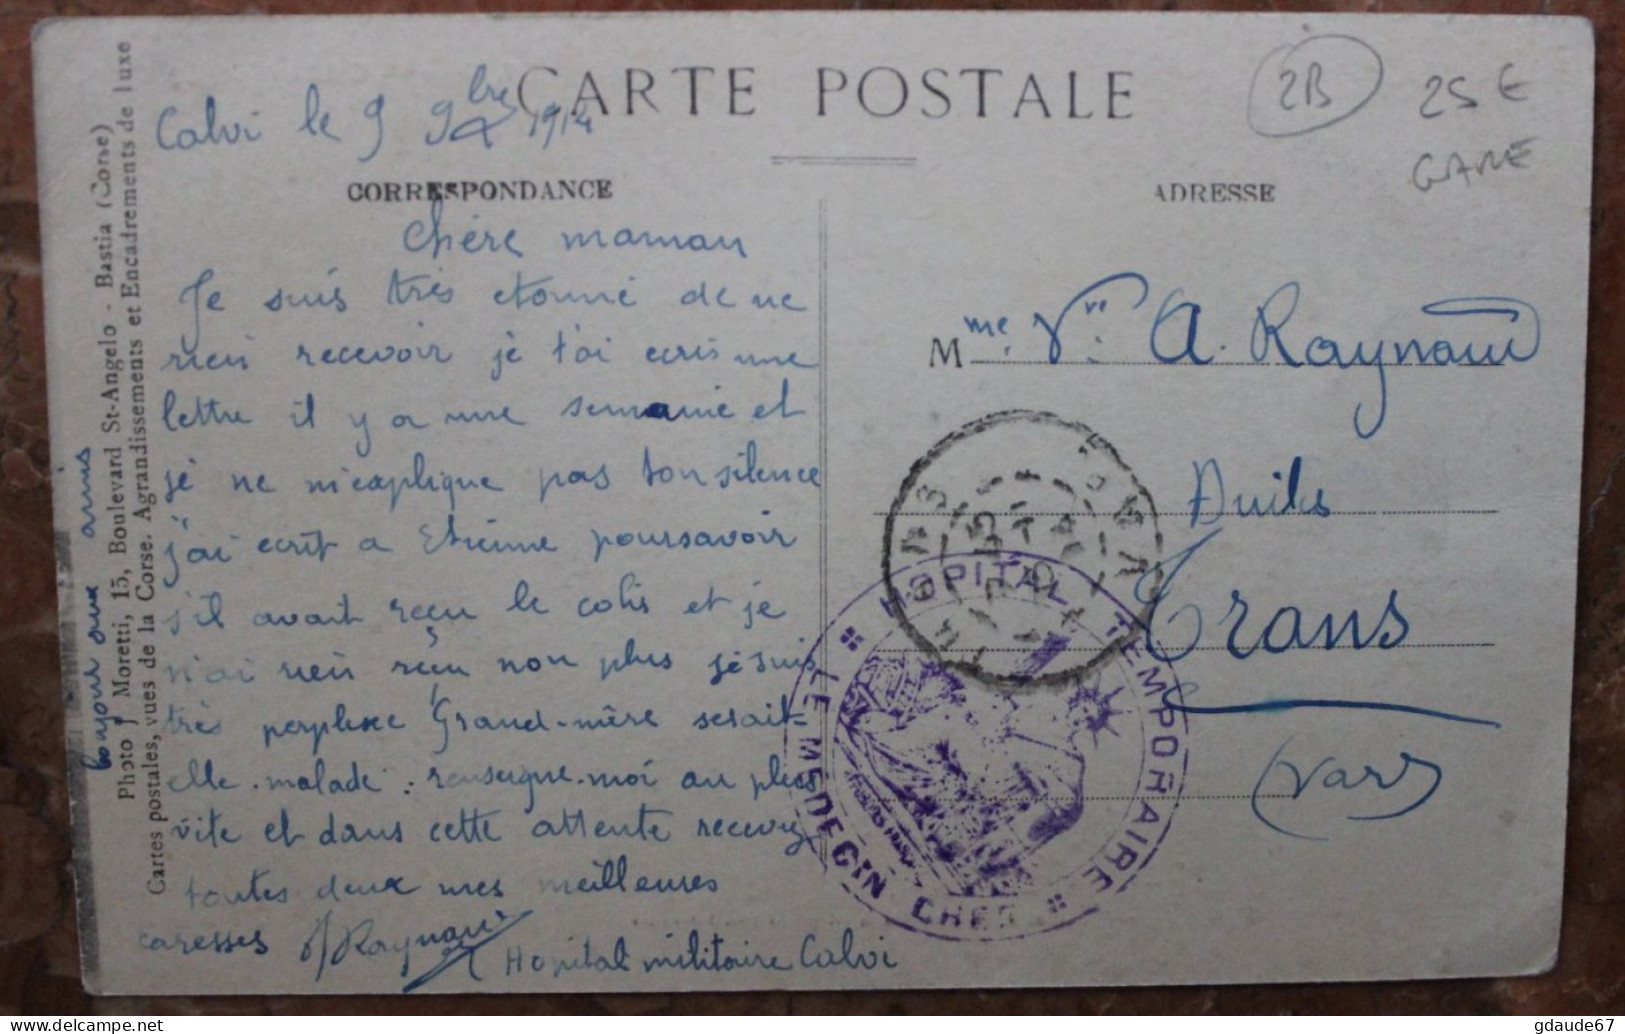 CARTE POSTALE
2B
25 €
GARE
Calvi le 9 9bre 1914
CORRESPONDANCE
ADRESSE
Chère maman
Je suis très etonné de ne
rien recevoir je t'ai ecris une
lettre il y a une semaine et
je ne m'explique pas ton silence
j'ai ecrit a Etienne pour savoir
s'il avait reçu le colis et je
n'ai rien reçu non plus je suis
très perplexe Grand-mère serait-
elle malade : renseigne-moi au plus
vite et dans cette attente recevez
toutes deux mes meilleures
caresses Raynaud
Hopital militaire Calvi
bonjour aux amis
Photo J Moretti, 15, Boulevard St-Angelo - Bastia (Corse)
Cartes postales, vues de la Corse. Agrandissements et Encadrements de luxe
Mme Vve A. Raynaud
Huiles
Trans
(Var)
TRANS
VAR
HOPITAL TEMPORAIRE
LE MEDECIN CHEF
gdaude67